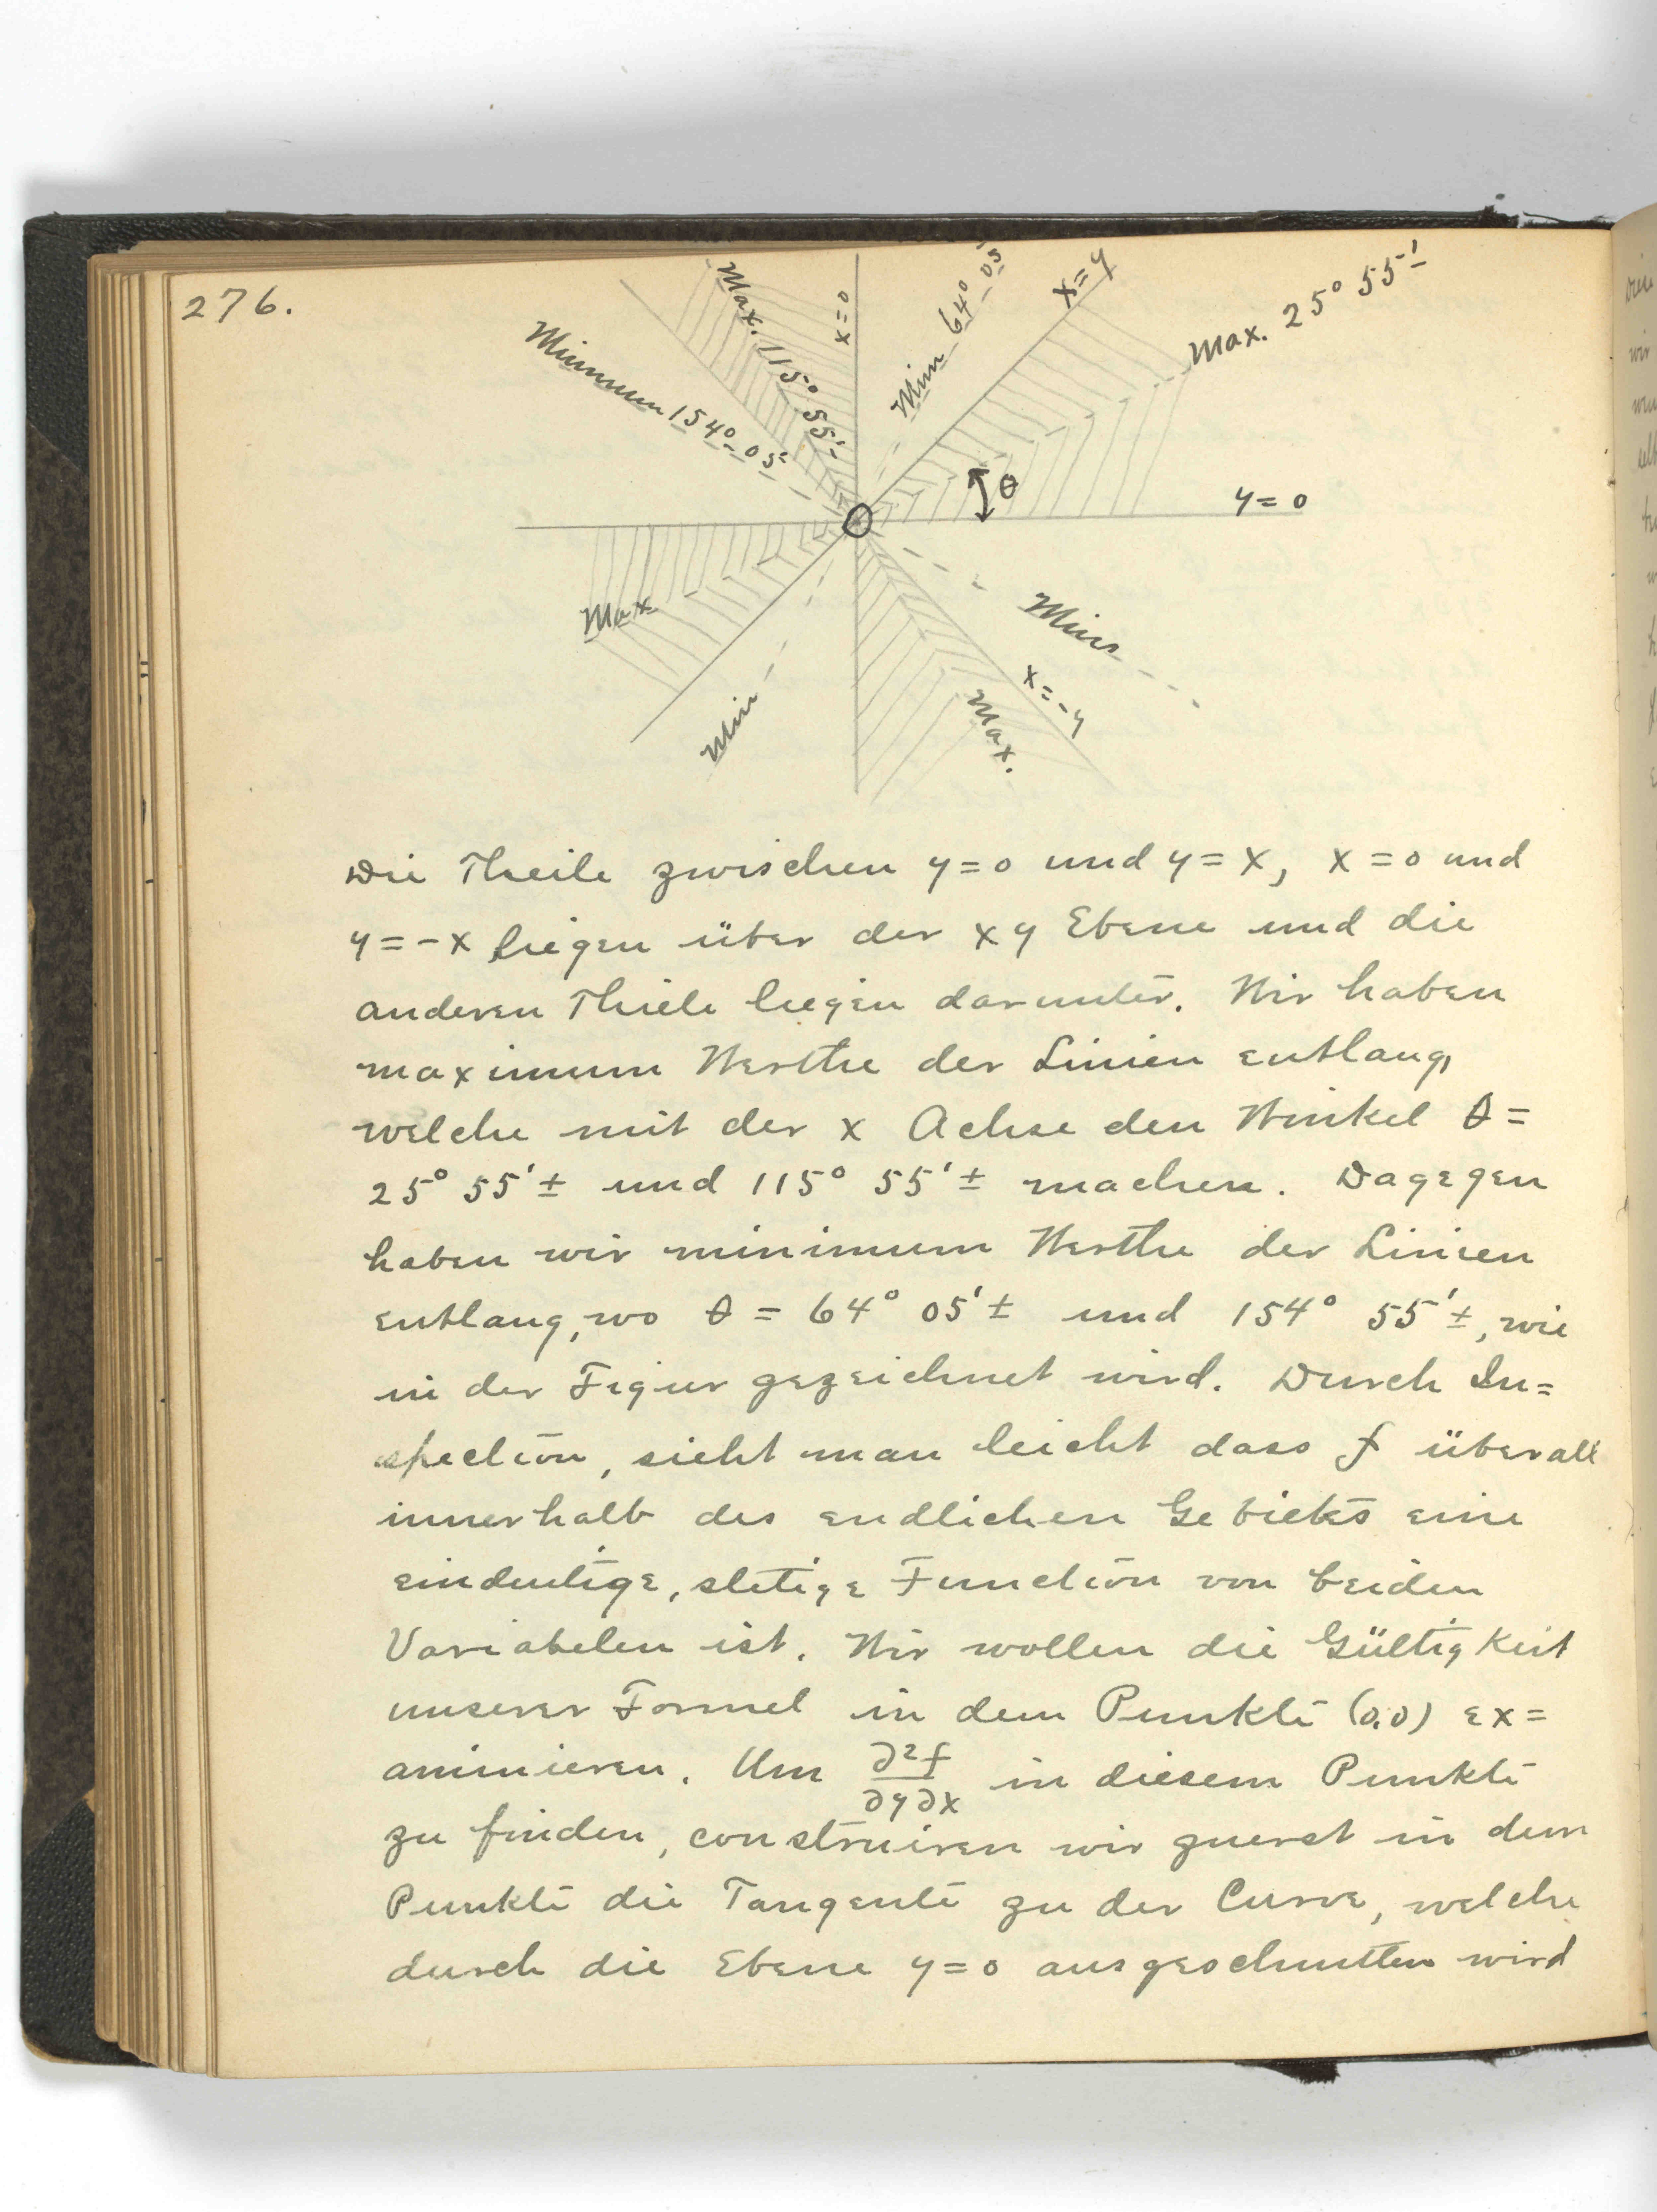 276.
Minimum 154° 05'
Max. 115° 55'
x=0
Min 64° 05'
x=y
Max. 25° 55'
θ
y=0
Max
Min
Min
x=-y
Max.
Die Theile zwischen y=0 und y=x, x=0 und
y=-x liegen über der xy Ebene und die
anderen Thiele liegen darunter. Wir haben
maximum Werthe der Linien entlang,
welche mit der x Achse den Winkel θ=
25° 55'± und 115° 55'± machen. Dagegen
haben wir minimum Werthe der Linien
entlang, wo θ = 64° 05'± und 154° 55'±, wie
in der Figur gezeichnet wird. Durch In=
spection, sieht man leicht dass f überall
innerhalb des endlichen Gebiets eine
eindeutige, stetige Function von beiden
Variabelen ist. Wir wollen die Gültigkeit
unserer Formel in dem Punkte (0,0) ex=
aminieren. Um ∂²f/∂y∂x in diesem Punkte
zu finden, construiren wir zuerst in dem
Punkte die Tangente zu der Curve, welche
durch die Ebene y=0 ausgeschnitten wird